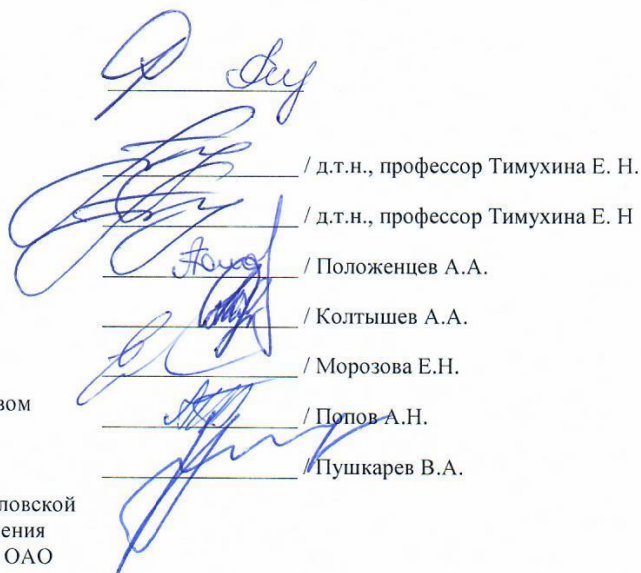 / д.т.н., профессор Тимухина Е. Н.
/ д.т.н., профессор Тимухина Е. Н
/ Положенцев А.А.
/ Колтышев А.А.
/ Морозова Е.Н.
вом
/ Попов А.Н.
/ Пушкарев В.А.
ловской
ения
ОАО